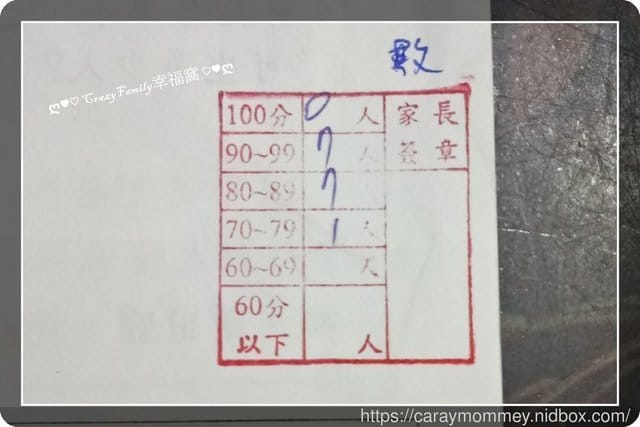 數
ღ♥♡ CrazyFamily幸福窩♡♥ღ
100分 0 人 家長
90~99 7 人 簽章
80~89 7
70~79 1 人
60~69 人
60分
以下 人
https://caraymommey.nidbox.com/